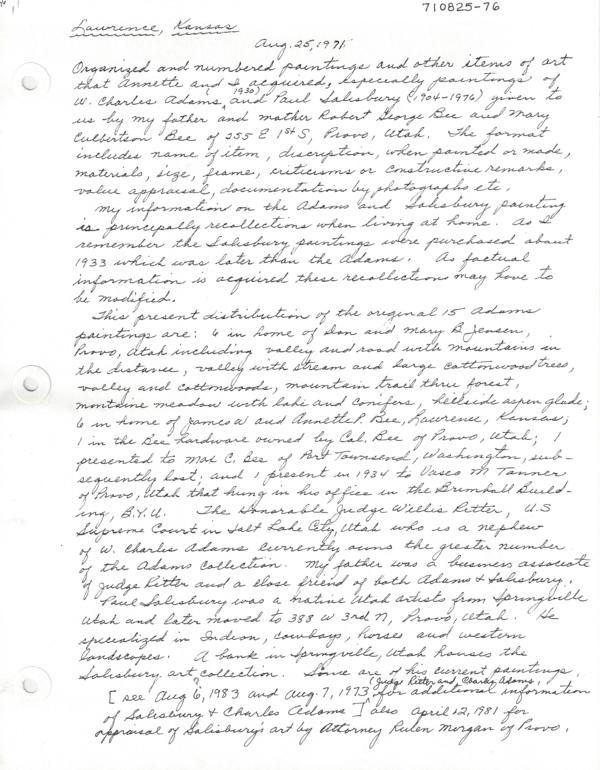 710825-76
Lawrence, Kansas
Aug. 25, 1971
Organized and numbered paintings and other items of art
that Annette and I acquired, especially paintings of
W. Charles Adams, (1930) and Paul Salisbury (1904-1976) given to
us by my father and mother Robert George Bee and Mary
Culbertson Bee of 255 E 1st S, Provo, Utah. The format
includes name of item, discription, when painted or made,
materials, size, frame, criticisms or constructive remarks,
value appraisal, documentation by photographs etc.
My information on the Adams and Salisbury painting
is principally recollections when living at home. As I
remember the Salisbury paintings were purchased about
1933 which was later than the Adams. As factual
information is acquired these recollections may have to
be modified.
This present distribution of the original 15 Adams
paintings are: 6 in home of Don and Mary B Jensen,
Provo, Utah including valley and road with mountains in
the distance, valley with stream and large cottonwood trees,
valley and cottonwoods, mountain trail thru forest,
montaine meadow with lake and conifers, hillside aspen glade;
6 in home of James W and Annette P. Bee, Lawrence, Kansas;
1 in the Bee Hardware owned by Cal. Bee of Provo, Utah; 1
presented to Max C. Bee of Port Townsend, Washington, sub-
sequently lost; and 1 present in 1934 to Vasco M Tanner
of Provo, Utah that hung in his office in the Brimhall Build-
ing, B.Y.U. The Honorable Judge Willis Ritter, U.S
Supreme Court in Salt Lake City, Utah who is a nephew
of W. Charles Adams currently owns the greater number
of the Adams collection. My father was a business associate
of Judge Ritter and a close friend of both Adams & Salisbury.
Paul Salisbury was a native Utah artists from Springville
Utah and later moved to 388 W 3rd N, Provo, Utah. He
specialized in Indian, cowboys, horses and western
landscapes. A bank in Springville, Utah houses the
Salisbury art collection. Some are of his current paintings.
[see Aug 6, 1983 and Aug. 7, 1973 (Judge Ritter and Charles Adams, for additional information
of Salisbury & Charles Adams] also April 12, 1981 for
appraisal of Salisbury's art by Attorney Rulen Morgan of Provo.